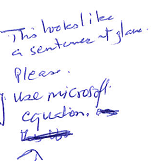 This looks like
a sentence at glance.
Please.
Use microsoft
equation.